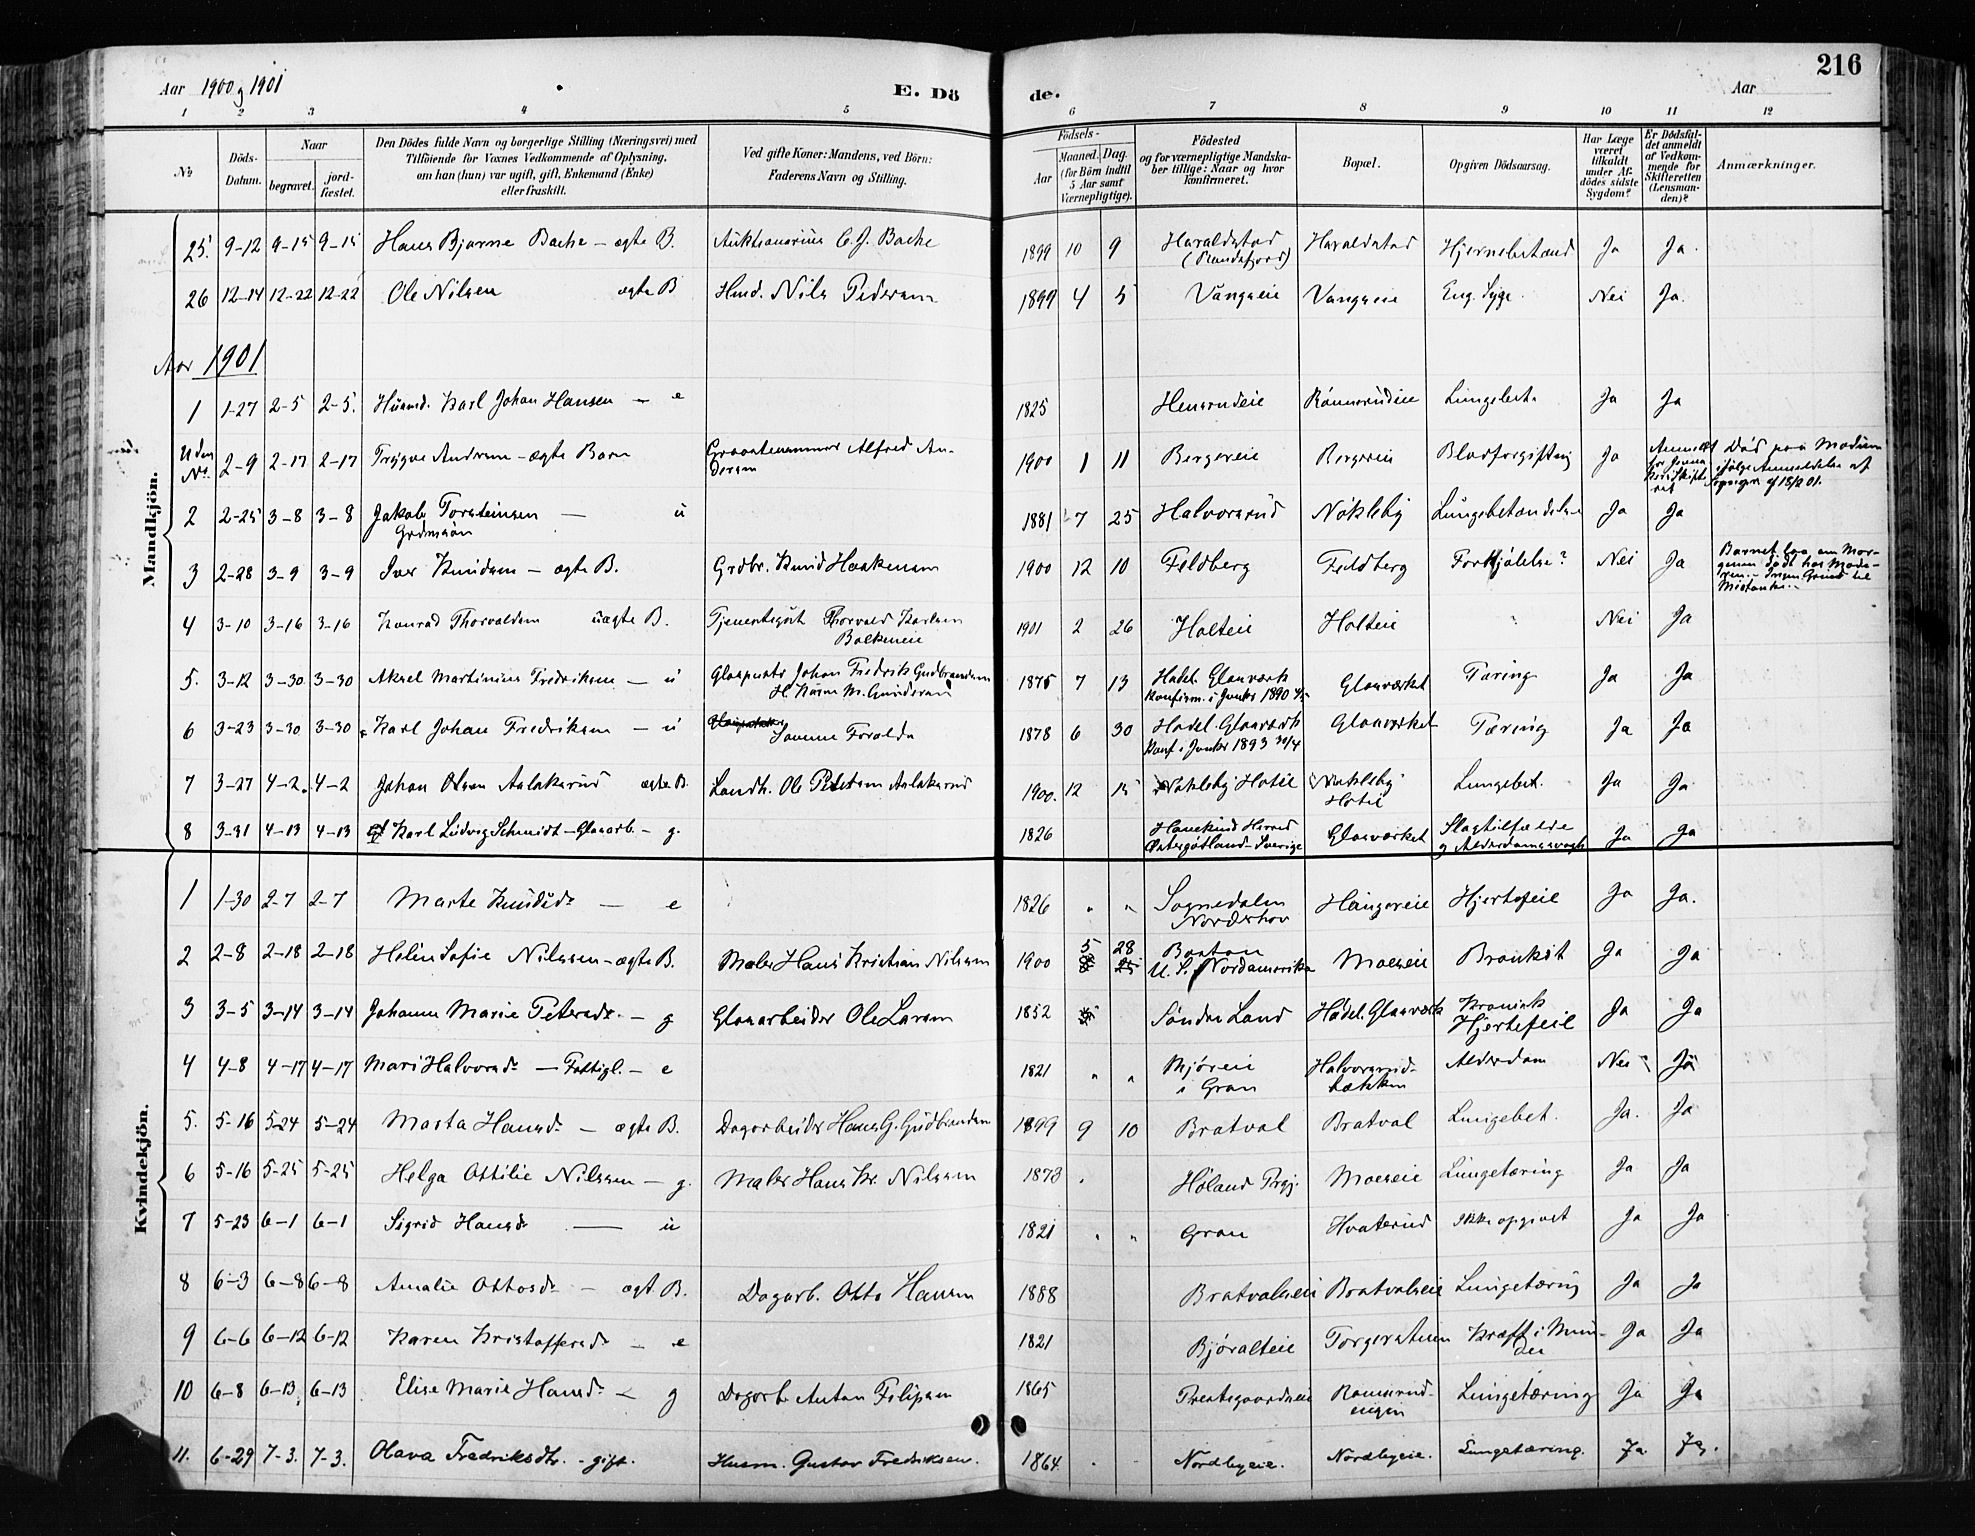 216
Aar 1900 og 1901
E. Dö
de.
Aar
1 2 3 4 5 6 7 8 9 10 11 12
No
Döds-Datum.
Naar
begravet.
jord-fæstet.
Den Dödes fulde Navn og borgerlige Stilling (Næringsvei) med
Tilföiende for Voxnes Vedkommende af Oplysning,
om han (hun) var ugift, gift, Enkemand (Enke)
eller fraskilt.
Ved gifte Koner: Mandens, ved Börn:
Faderens Navn og Stilling.
Födsels-
Aar
Maaned. Dag.
(for Börn indtil
5 Aar samt
Værnepligtige).
Födested
og for værnepligtige Mandska-
ber tillige: Naar og hvor
konfirmeret.
Bopæl.
Opgiven Dödsaarsag.
Har Læge
været
tilkaldt
under Af-
dödes sidste
Sygdom?
Er Dödsfal-
det anmeldt
af Vedkom-
mende for
Skifteretten
(Lensman-
den)?
Anmærkninger.
Mandkjön.
25. 9-12 9-15 9-15 Hans Bjarne Bache - ægte B. Auktionarius C. J. Bache 1899 10 9 Haraldstad Haraldstad Hjernebetænd Ja Ja.
26 12-14 12-22 12-22 Ole Nilsen ægte B Husmd. Nils Pedersen 1899 4 5 Vangseie Vangseie Eng. Syge. Nei Ja.
Aar 1901
1 1-27 2-5 2-5. Husmd. Karl Johan Hansen - e 1825 Hensrudeie Lungebet. Ja Ja
Uden No. 2-9 2-17 2-17 Trygve Andersen - ægte Barn Alfred An-
dersen 1900 1 11 Bergereie Bergereie Blodforgiftning Ja Anmeldt Død paa Modum
ifølge Anmeldelse af
2 2-25 3-8 3-8 Jakob Torsteinsen - u 1881 7 25 Halvorsrud Nøkleby Lungebetændelse Ja Ja
Grdmsøn
3 2-28 3-9 3-9 Iver Knudsen - ægte B. Grdbr. Knud Haakensen 1900 12 10 Feldberg Feldberg Forkjølelse? Nei Ja Barnet laa en Mor-
genen dødt hos Mode-
ren. - Ingen Grund til
Mistanke.
4 3-10 3-16 3-16 Konrad Thorvaldsen uægte B. Tjenestegut Thorvald Karlsen 1901 2 26 Holteie Holteie Nei Ja
5. 3-12 3-30 3-30 Aksel Martinius Fredriksen - u Glaspuster Johan Fredrik Gudbrandsen 1875 7 13 Hadel. Glasværk Glasværket Tæring Ja Ja
Konfirm. i Jevnker 1890
6 3-23 3-30 3-30 Karl Johan Fredriksen - u Samme Foreldre 1878 6 30 Hadel. Glasværk Glasværket Tæring Ja Ja
Konf. i Jevnker 1893 30/4
7 3-27 4-2 4-2 Johan Olsen Aslaksrud ægte B. Landh. Ole Petersen Aslaksrud 1900. 12 15 Nøkleby Lungebet. Ja Ja
8 3-31 4-13 4-13 Karl Ludvig Schmidt - Glasarb. - g. 1826 Hanekind Herred Glasværket Slagtilfælde Ja Ja
Østergøtland - Sverige og Alderdomssvagh
Kvindekjön.
1 1-30 2-7 2-7 Marte Knudsdr - e 1826 " " Sognedalen Haugereie Hjertefeil Ja Ja.
Norderhov
2 2-8 2-18 2-18 Helen Sofie Nilssen - ægte B. Maler Hans Kristian Nilssen 1900 5 28 Boston Moeseie Bronkit Ja Ja
U. S. Nordamerika
3 3-5 3-14 3-14 Johanne Marie Petersdr. - g Glasarbeider Ole Larsen 1852 Søndre Land Hadel. Glasværk Kronisk Ja Ja
Hjertefeil
4 4-8 4-17 4-17 Mari Halvorsdr - Fattigl. - e 1821 " " i Gran Halvorsrud-
bakken Alderdom Nei Ja
5. 5-16 5-24 5-24 Marta Hansdr - ægte B. Dagarbeider Hans G. Gudbrandsen 1899 9 10 Bratval Bratval Lungebet. Ja. Ja
6 5-16 5-25 5-25 Helga Ottilie Nilssen - g. Maler Hans Kr. Nilssen 1873 Høland Prgj. Moeseie Lungetæring Ja Ja
7 5-23 6-1 6-1 Sigrid Hansdr - u 1821 " " Gran Hvaterud Ikke opgivet Ja Ja
8 6-3 6-8 6-8 Amalie Ottosdr - ægt. B. Dagarb. Otto Hansen 1888 Bratvalseie Bratvalseie Lungetæring Ja Ja
9 6-6 6-12 6-12 Karen Kristoffersdr - e 1821 Bjøralteie Kræft i Mun-
den Ja Ja
10 6-8 6-13 6-13 Elise Marie Hansdr - g Dagarb. Anton Filipsen 1865 Prestegaardseie Lungetæring Ja Ja
11. 6-29 7-3. 7-3. Olava Fredriksdtr. - gift. Husm. Gustav Fredriksen. 1864. Nordbyeie. Nordbyeie. Lungetæring. Ja. Ja.